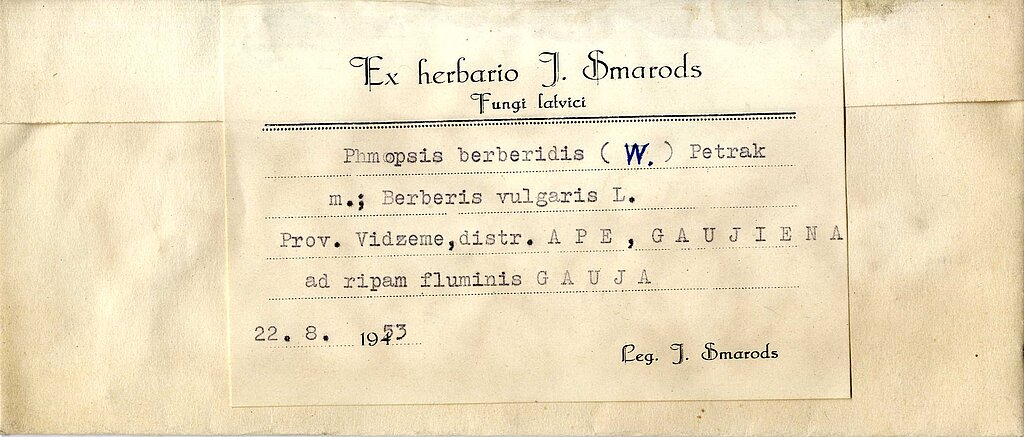 Ex herbario J. Smarods
Fungi latvici
Phmopsis berberidis ( W. ) Petrak
m.; Berberis vulgaris L.
Prov. Vidzeme, distr. A P E , G A U J I E N A
ad ripam fluminis G A U J A
22. 8. 1953
Leg. J. Smarods